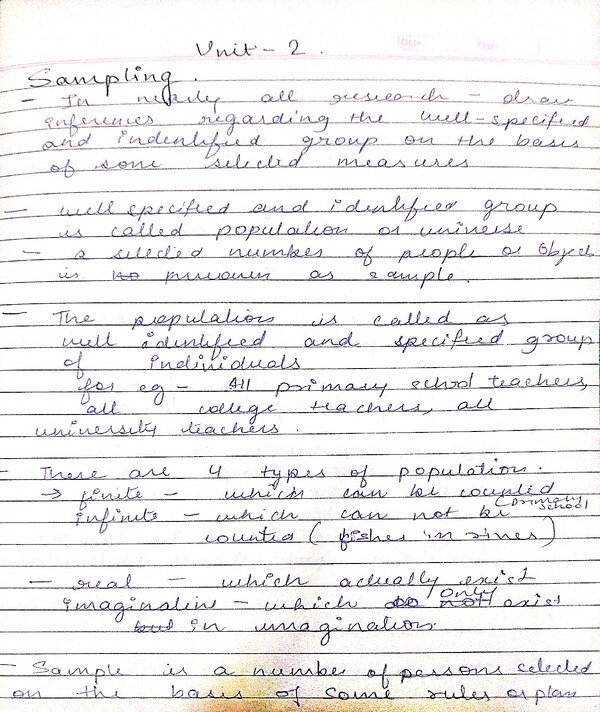 Unit - 2.
Sampling.
- In nearly all research - draw
inferences regarding the well-specified
and indentified group on the basis
of some selected measures
- well specified and identified group
is called population or universe
- a selected number of people or object
is as sample.
- The population is called as
well identified and specified group
of individuals
for eg - All primary school teachers,
all college teachers, all
university teachers.
- There are 4 types of population.
→ finite - which can be counted
(Primary school
infinite - which can not be
counted (fishes in rivers)
- real - which actually exist
imaginative - which only exist
in imagination.
- Sample is a number of persons selected
on the basis of some rules or plan